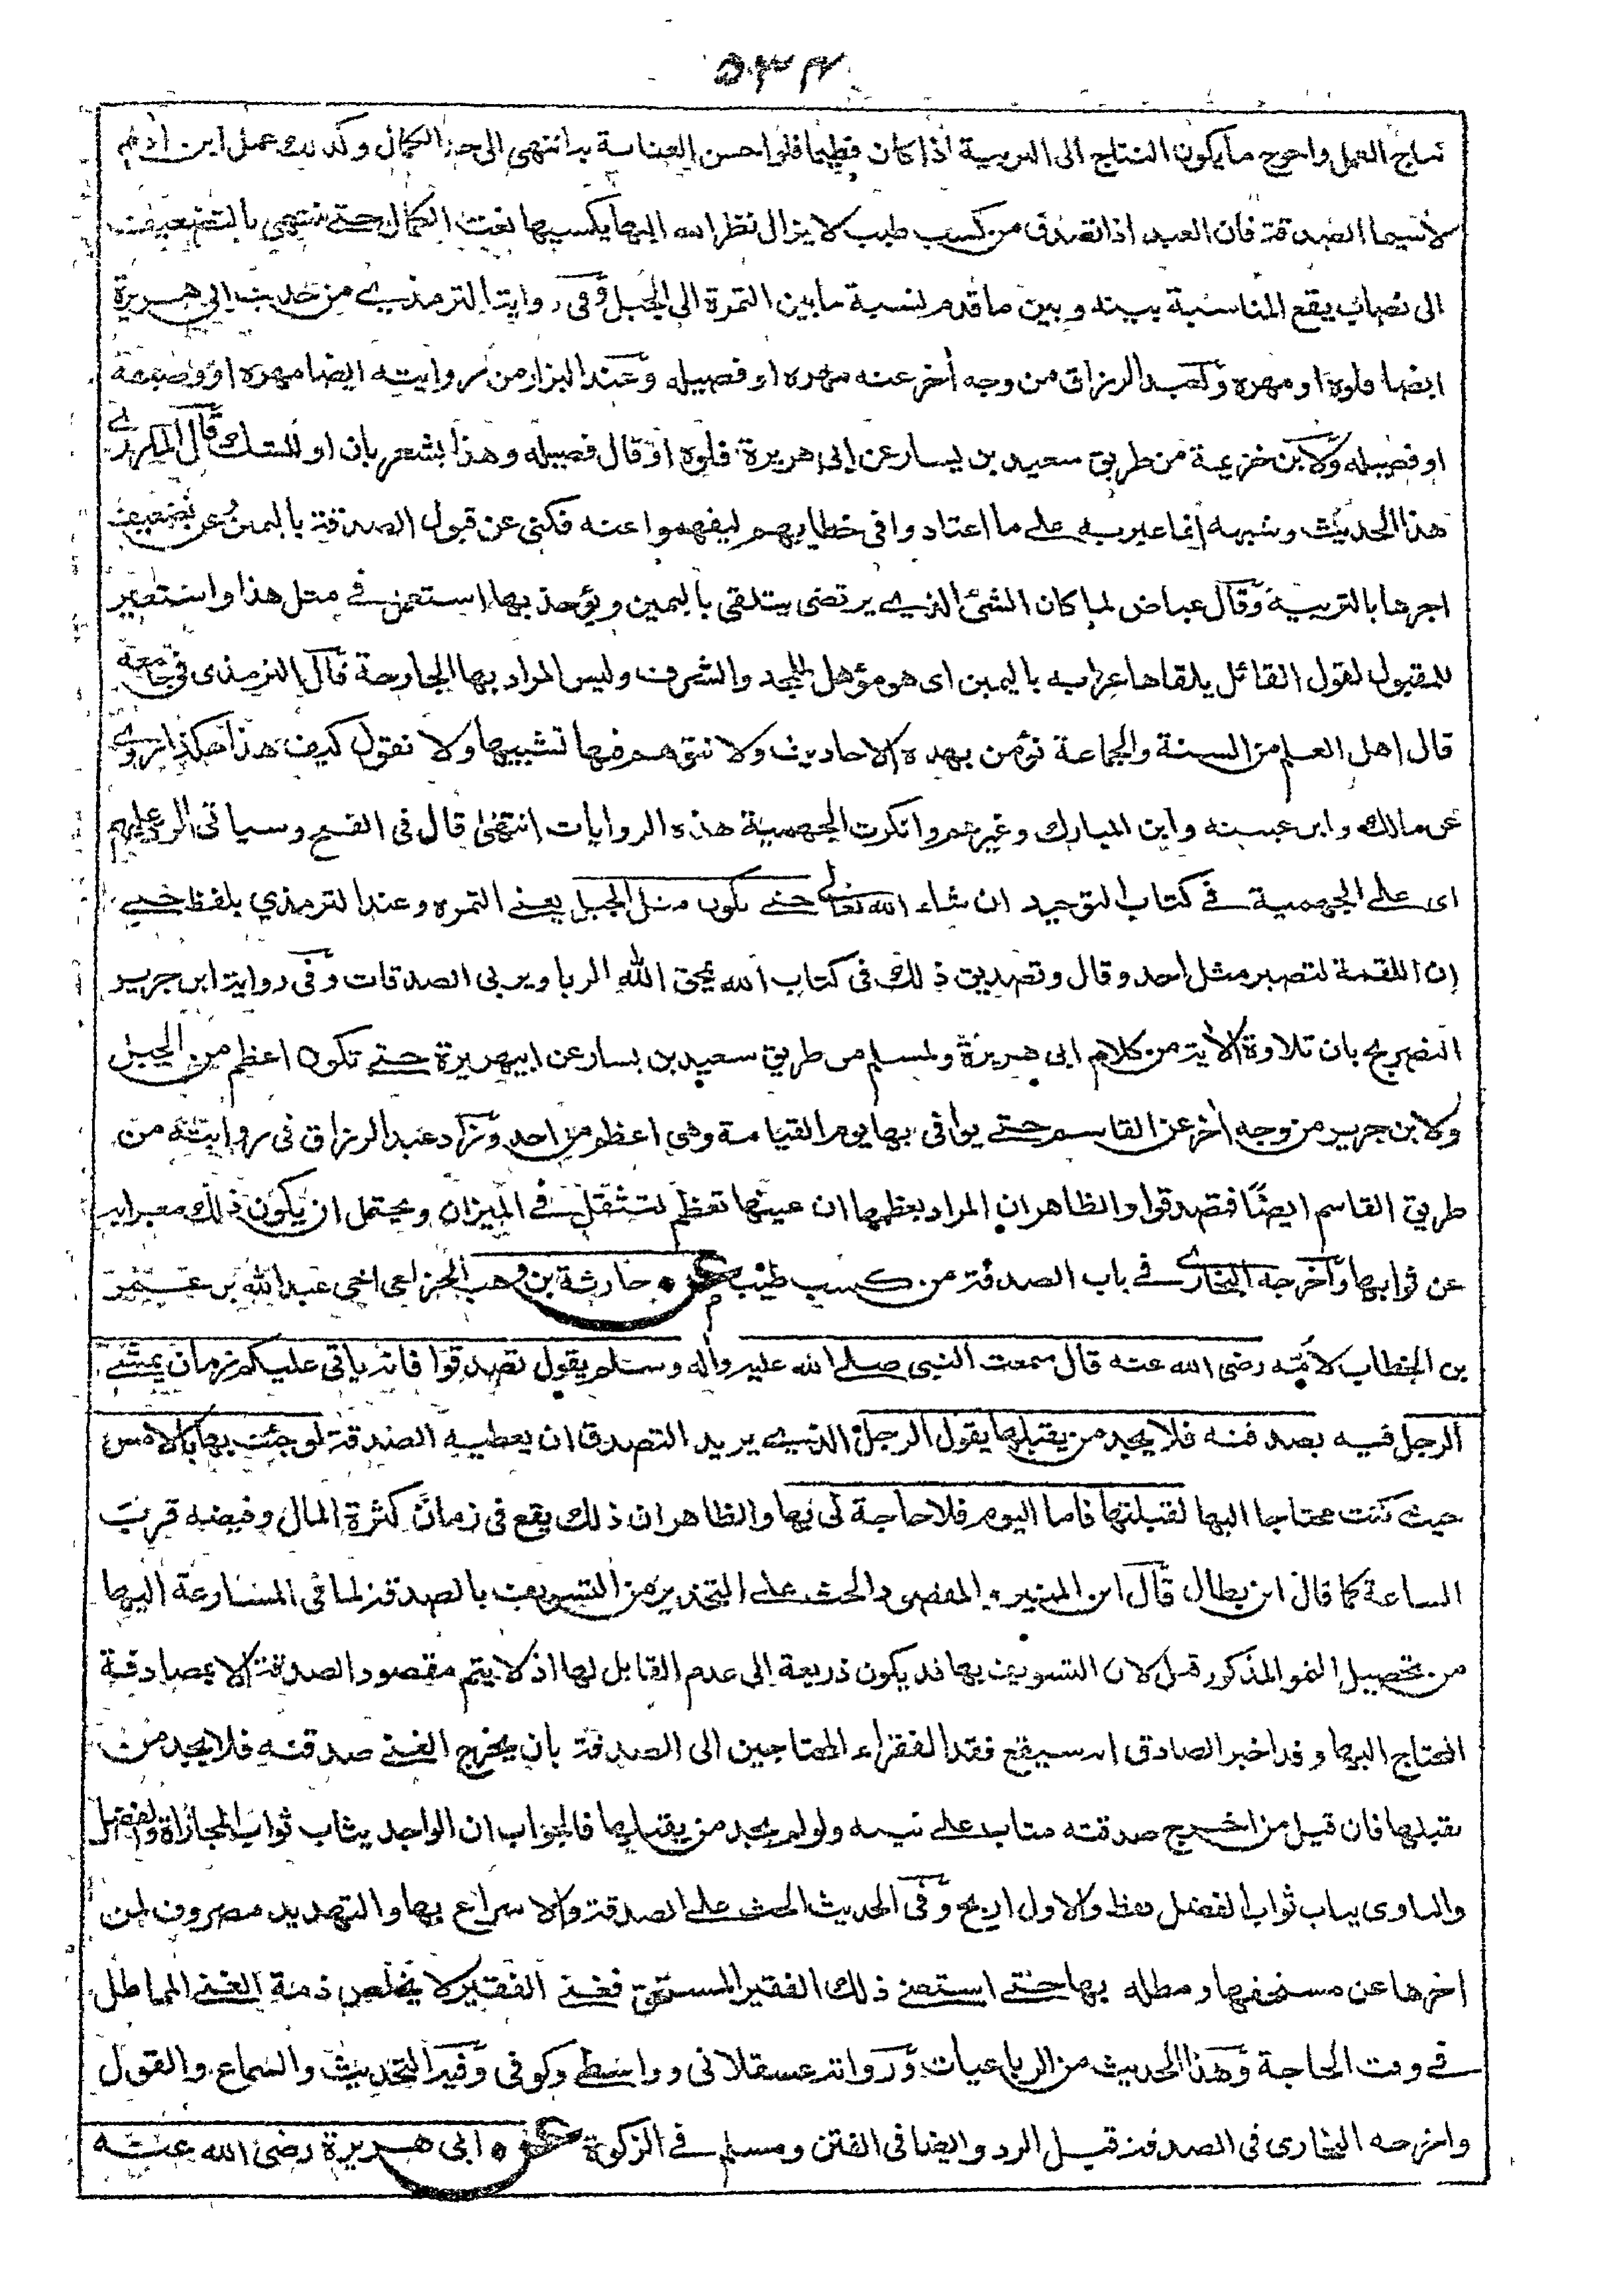 ٥٣٤
نتاج العمل واحوج ما يكون النتاج الى التربية اذا كان فطيما فاذا احسن العناية به انتهى الى حد الكمال وكذلك عمل ابن ادم
لاسيما الصدقة فان العبد اذا تصدق من كسب طيب لا يزال نظر الله اليها يكسبها نعت الكمال حتى تنتهى بالتضعيف
الى نصاب يقع المناسبة بينه وبين ما قدم نسبة ما بين التمرة الى الجبل وفى رواية الترمذي من حديث ابى هريرة
ايضا فلوه او مهره ولعبد الرزاق من وجه أخر عنه مهره او فصيله وعند البزار من روايته ايضا مهره او وصيفه
او فصيله ولابن خزيمة من طريق سعيد بن يسار عن ابى هريرة فلوه او قال فصيله وهذا يشعر بان او للشك قال المازري
هذا الحديث وشبهه إنما عبر به على ما اعتادوا فى خطابهم ليفهموا عنه فكنى عن قبول الصدقة باليمين وعن تضعيف
اجرها بالتربية وقال عياض لما كان الشئ الذي يرتضى يتلقى باليمين ويؤخذ بها استعمل في مثل هذا واستعير
للقبول لقول القائل تلقاها عرابه باليمين اى هو مؤهل للمجد والشرف وليس المراد بها الجارحة قال الترمذى فى جامعه
قال اهل العلم من السنة والجماعة نؤمن بهذه الاحاديث ولا نتوهم فيها تشبيها ولا نقول كيف هذا هكذا روي
عن مالك وابن عيينه وابن المبارك وغيرهم وانكرت الجهمية هذه الروايات انتهى قال فى الفتح وسياتى الرد عليهم
اى على الجهمية في كتاب التوحيد ان شاء الله تعالى حتى تكون مثل الجبل يعنى التمره وعند الترمذي بلفظ حتى
إن اللقمة لتصير مثل احد وقال وتصديق ذلك فى كتاب الله يمحق الله الربا ويربى الصدقات وفى رواية ابن جرير
التصريح بان تلاوة الأية من كلام ابى هريرة ولمسلم من طريق سعيد بن يسار عن ابيهريرة حتى تكون اعظم من الجبل
ولابن جرير من وجه أخر عن القاسم حتى يوافى بها يوم القيامة وهى اعظم من احد وزاد عبد الرزاق فى روايته من
طريق القاسم ايضًا فتصدقوا والظاهر ان المراد بعظمها ان عينها تعظم لتثقل في الميزان ويحتمل ان يكون ذلك معبرا به
عن ثوابها واخرجه البخاري في باب الصدقة من كسب طيب عن حارثة بن وهب الخزاعى اخى عبد الله بن عمر
بن الخطاب لأمّه رضى الله عنه قال سمعت النبى صلى الله عليه وأله وسلم يقول تصدقوا فانه ياتى عليكم زمان يمشي
الرجل فيه بصدقته فلا يجد من يقبلها يقول الرجل الذي يريد التصدق ان يعطيه الصدقة لو جئت بها بالامس
حيث كنت محتاجا اليها لقبلتها فاما اليوم فلا حاجة لى فيها والظاهر ان ذلك يقع فى زمان كثرة المال وفيضه قرب
الساعة كما قال ابن بطال قال ابن المنير المقصود الحث على التحذير من التسويف بالصدقة لما فى المسارعة اليها
من تحصيل النمو المذكور قيل لان التسويف بها قد يكون ذريعة الى عدم القابل لها اذ لا يتم مقصود الصدقة الا بمصادفة
المحتاج اليها وقد اخبر الصادق انه سيقع فقد الفقراء المحتاجين الى الصدقة بان يخرج الغنى صدقته فلا يجد من
يقبلها فان قيل من اخرج صدقته مثاب على نيته ولو لم يجد من يقبلها فالجواب ان الواجد يثاب ثواب المجازاة والفضل
والناوى يثاب ثواب الفضل فقط والاول اربح وفى الحديث الحث على الصدقة والاسراع بها والتهديد مصروف لمن
اخرها عن مستحقها ومطله بها حتى استغنى ذلك الفقير المستحق فغنى الفقير لا يخلص ذمة الغنى المماطل
في وقت الحاجة وهذا الحديث من الرباعيات ورواته عسقلانى وواسطي وكوفى وفيه التحديث والسماع والقول
واخرجه البخارى فى الصدقة قبل الرد وايضا فى الفتن ومسلم في الزكوة عن ابى هريرة رضى الله عنه